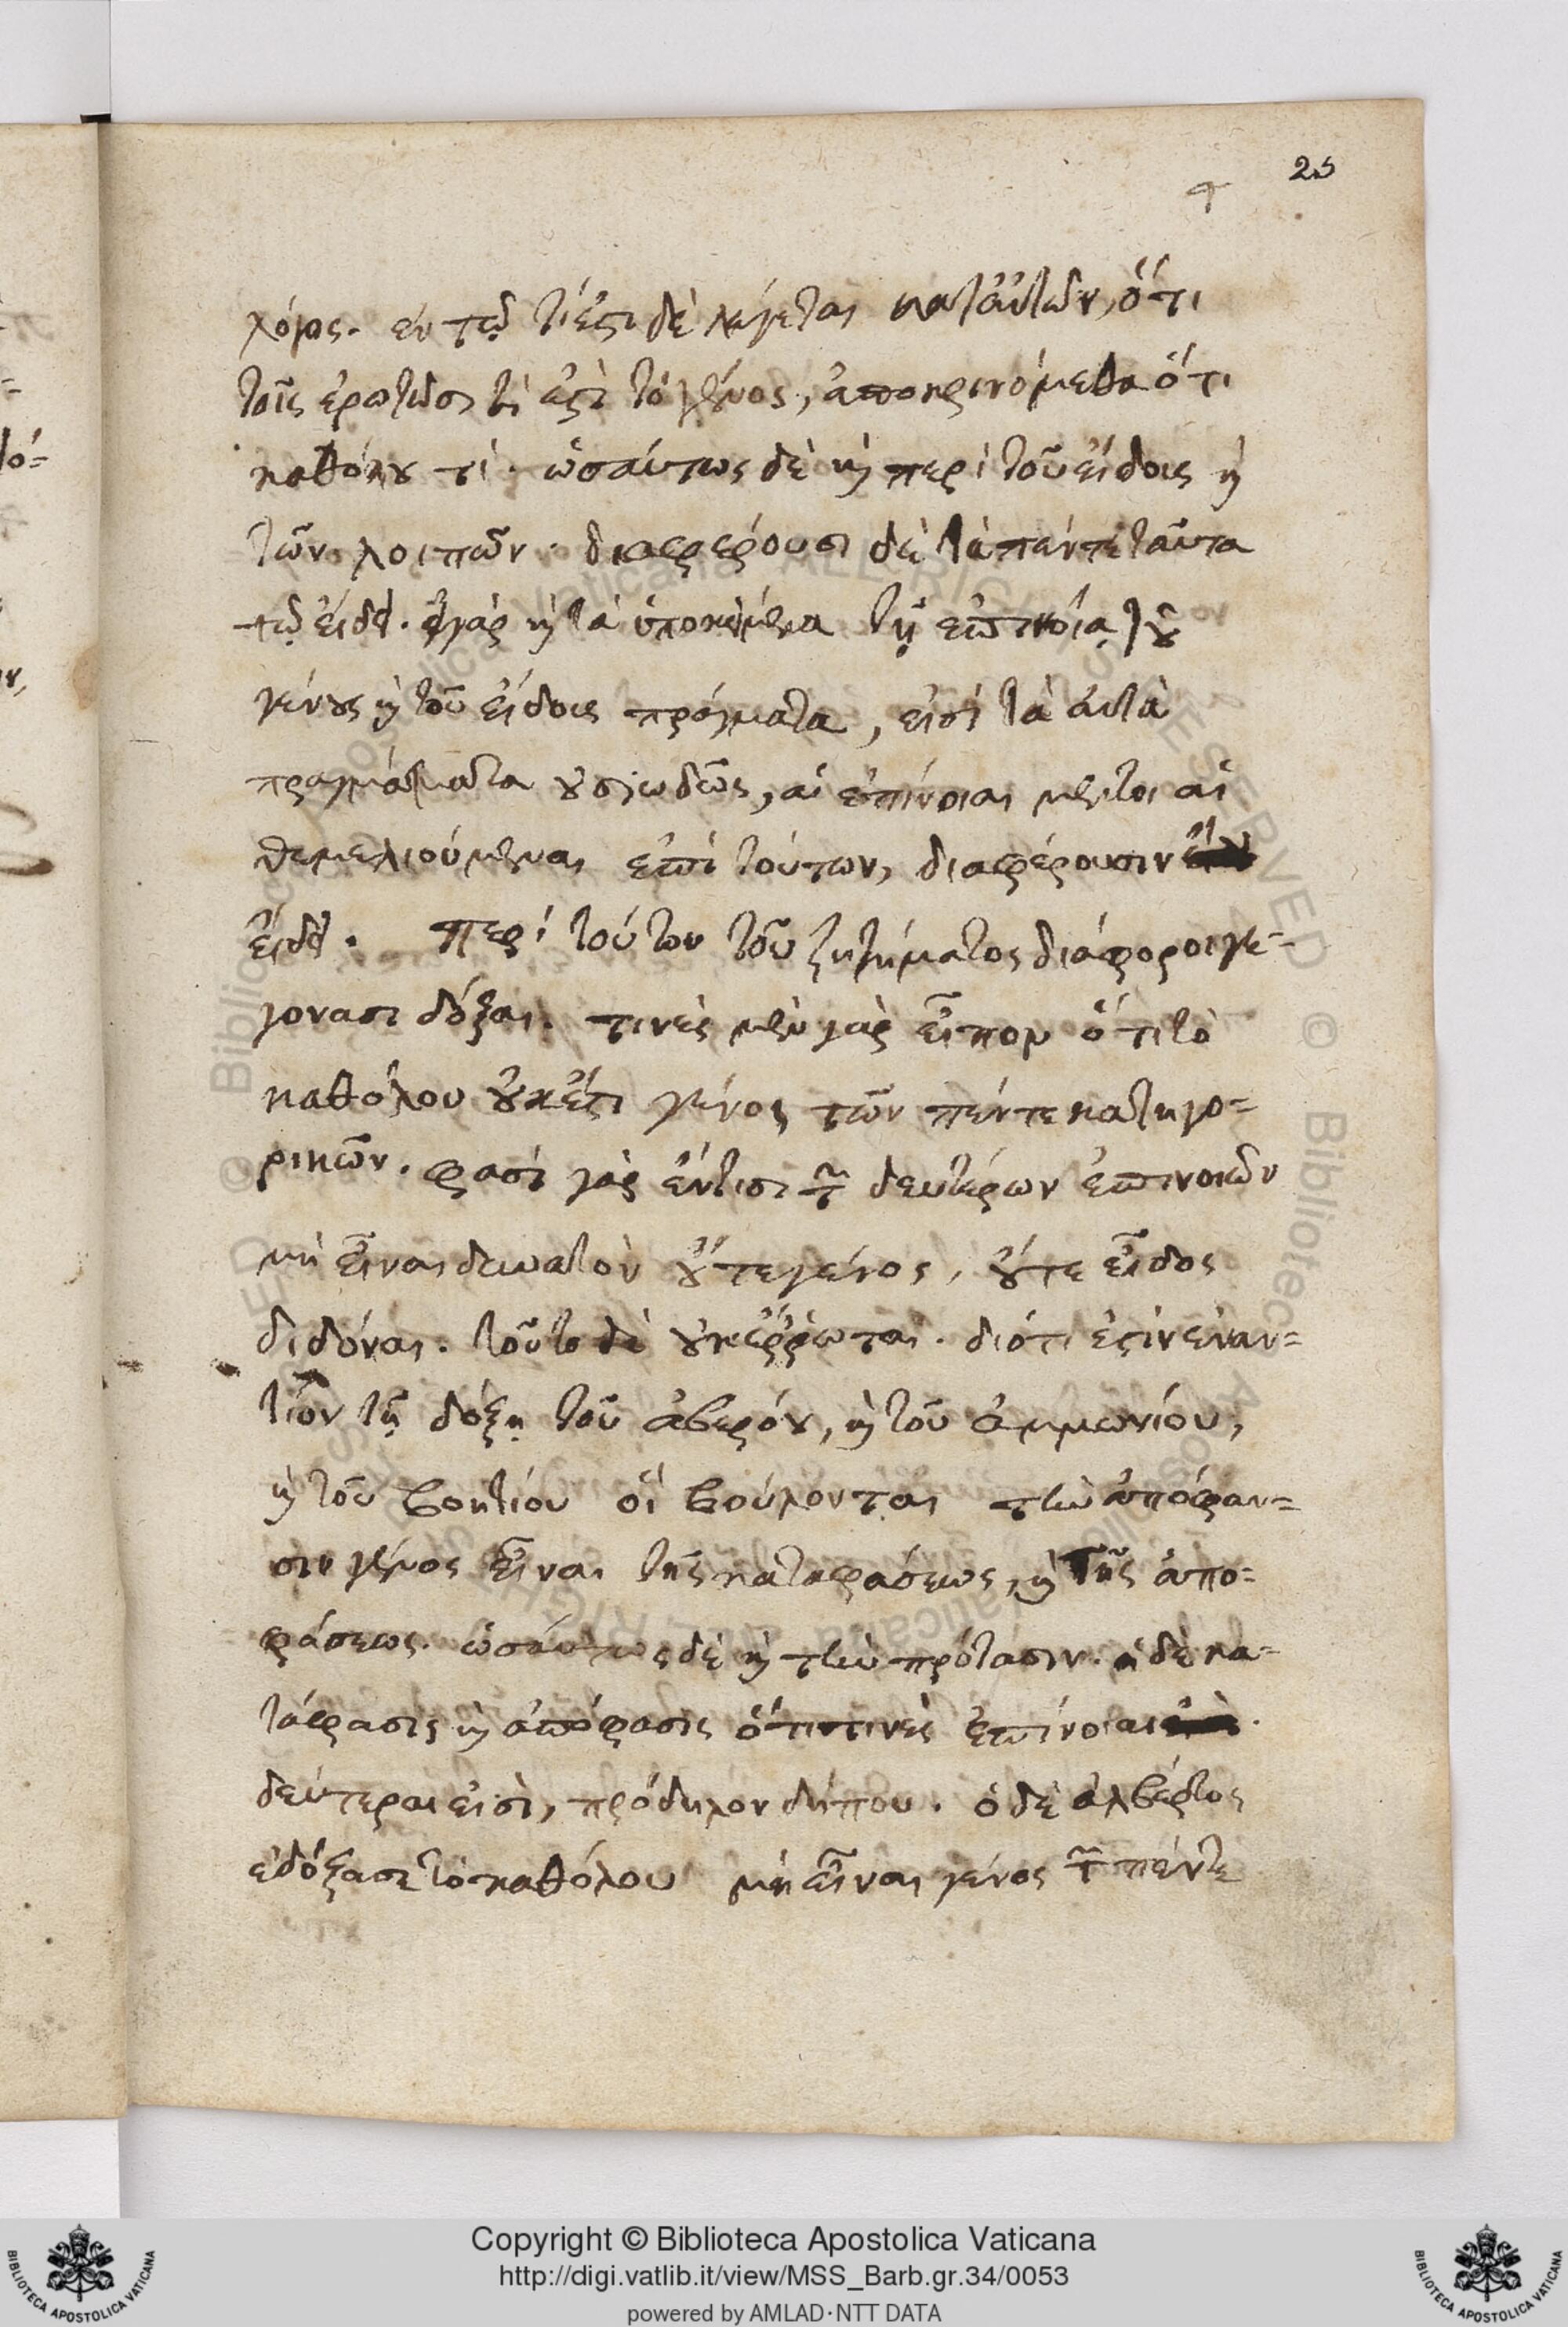 25
λόγος. ἐν τῷ τί ἐστι δὲ λέγεται κατ' αὐτῶν, ὅτι
τοῖς ἐρωτῶσι τί ἐστὶ τὸ γένος, ἀποκρινόμεθα ὅτι
καθόλου τί. ὡσαύτως δὲ καὶ περὶ τοῦ εἴδους καὶ
τῶν λοιπῶν. διαφέρουσι δὲ τὰ πέντε ταῦτα
τῷ εἴδει. εἰ γὰρ καὶ τὰ ὑποκείμενα τῇ ἐπινοίᾳ τοῦ
γένους καὶ τοῦ εἴδους πράγματα, εἰσὶ τὰ αὐτὰ
πραγμάτματα οὐσιωδῶς, αἱ ἐπίνοιαι μέντοι αἱ
θεμελιούμεναι ἐπὶ τούτων, διαφέρουσιν
εἴδει. περὶ τούτου τοῦ ζητήματος διάφοροι γε-
γόνασι δόξαι. τινὲς μὲν γὰρ εἶπον ὅτι τὸ
καθόλου οὐκ ἔστι γένος τῶν πέντε κατηγο-
ρικῶν. φασὶ γὰρ ἔν τισι τῶν δευτέρων ἐπινοιῶν
μὴ εἶναι δυνατὸν οὔτε γένος, οὔτε εἶδος
διδόναι. τοῦτο δὲ οὐκ ἔῤῥωται. διότι ἐστὶν ἐναν-
τίον τῇ δόξῃ τοῦ ἀβερόου, καὶ τοῦ ἀμμωνίου,
καὶ τοῦ βοητίου οἳ βούλονται τὴν ἀπόφαν-
σιν γένος εἶναι τῆς καταφάσεως, καὶ τῆς ἀπο-
φάσεως. ὡσαύτως δὲ καὶ τὴν πρότασιν. ἡ δὲ κα-
τάφασις καὶ ἀπόφασις ὅτι τινὲς ἐπίνοιαι
δεύτεραι εἰσὶ, πρόδηλον δήπου. ὁ δὲ ἀλβέρτος
ἐδόξασε τὸ καθόλου μὴ εἶναι γένος τῶν πέντε
Copyright © Biblioteca Apostolica Vaticana
http://digi.vatlib.it/view/MSS_Barb.gr.34/0053
powered by AMLAD·NTT DATA
BIBLIOTECA APOSTOLICA VATICANA
BIBLIOTECA APOSTOLICA VATICANA